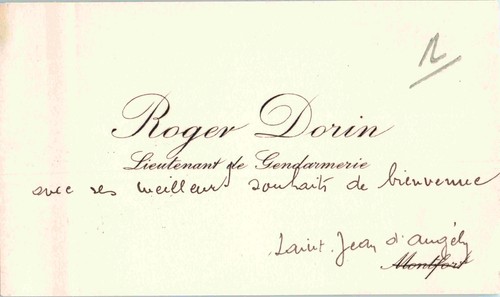 R
Roger Dorin
Lieutenant de Gendarmerie
avec ses meilleurs souhaits de bienvenue
Saint Jean d'Angély
Montfort